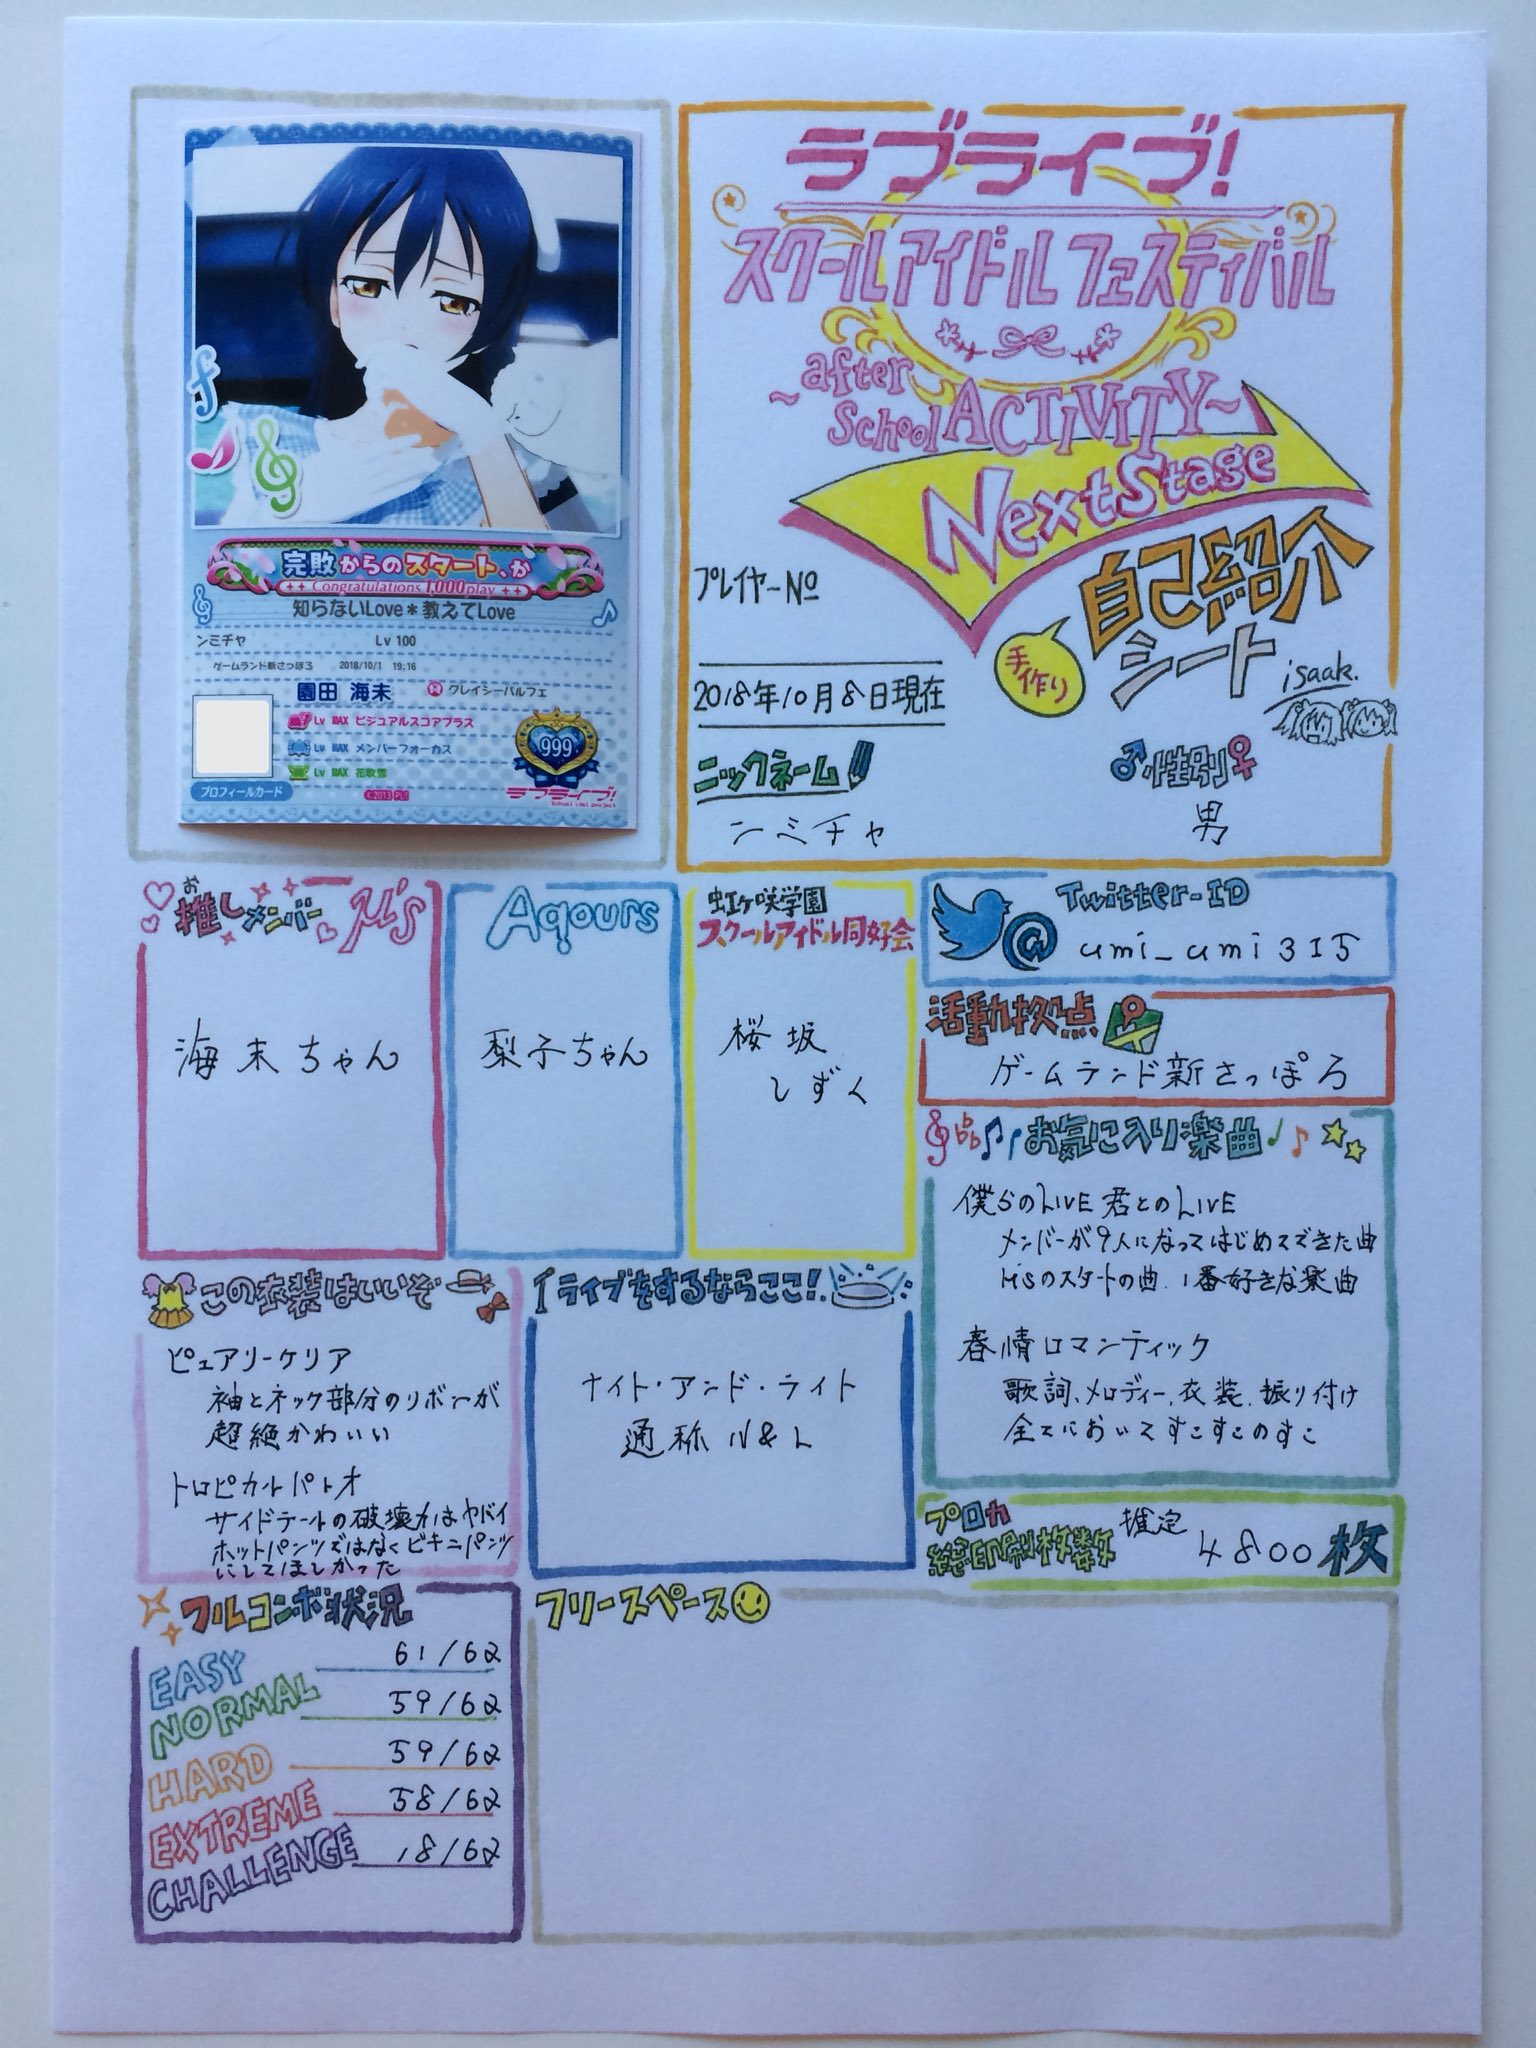 完敗からのスタート、か
Congratulations 1,000play
知らないLove＊教えてLove
ンミチャ Lv 100
ゲームランド新さっぽろ 2018/10/1 19:16
園田 海未 グレイシーパルフェ
Lv MAX ビジュアルスコアプラス
Lv MAX メンバーフォーカス
Lv MAX 花吹雪
999
プロフィールカード
©2013 PL!
ラブライブ!
School idol project
ラブライブ!
スクールアイドルフェスティバル
~after School ACTIVITY~
Next Stage
手作り
自己紹介
シート
isaak.
プレイヤーNo
2018年10月8日現在
ニックネーム
ンミチャ
♂性別♀
男
お
推しメンバー μ's
海未ちゃん
Aqours
梨子ちゃん
虹ヶ咲学園
スクールアイドル同好会
桜坂
しずく
Twitter-ID
@umi_umi315
活動拠点
ゲームランド新さっぽろ
お気に入り楽曲
僕らのLIVE 君とのLIVE
メンバーが9人になってはじめてできた曲
μ'sのスタートの曲.1番好きな楽曲
春情ロマンティック
歌詞、メロディー、衣装、振り付け
全てにおいてすこすこのすこ
この衣装はいいぞ
ピュアリーケリア
袖とネック部分のリボンが
超絶かわいい
トロピカルパレオ
サイドテールの破壊力はヤバイ
ホットパンツではなくビキニパンツ
にしてほしかった
ライブをするならここ!
ナイト・アンド・ライト
通称 N&L
プロカ
総印刷枚数 推定 4800枚
フルコンボ状況
EASY 61/62
NORMAL 59/62
HARD 59/62
EXTREME 58/62
CHALLENGE 18/62
フリースペース